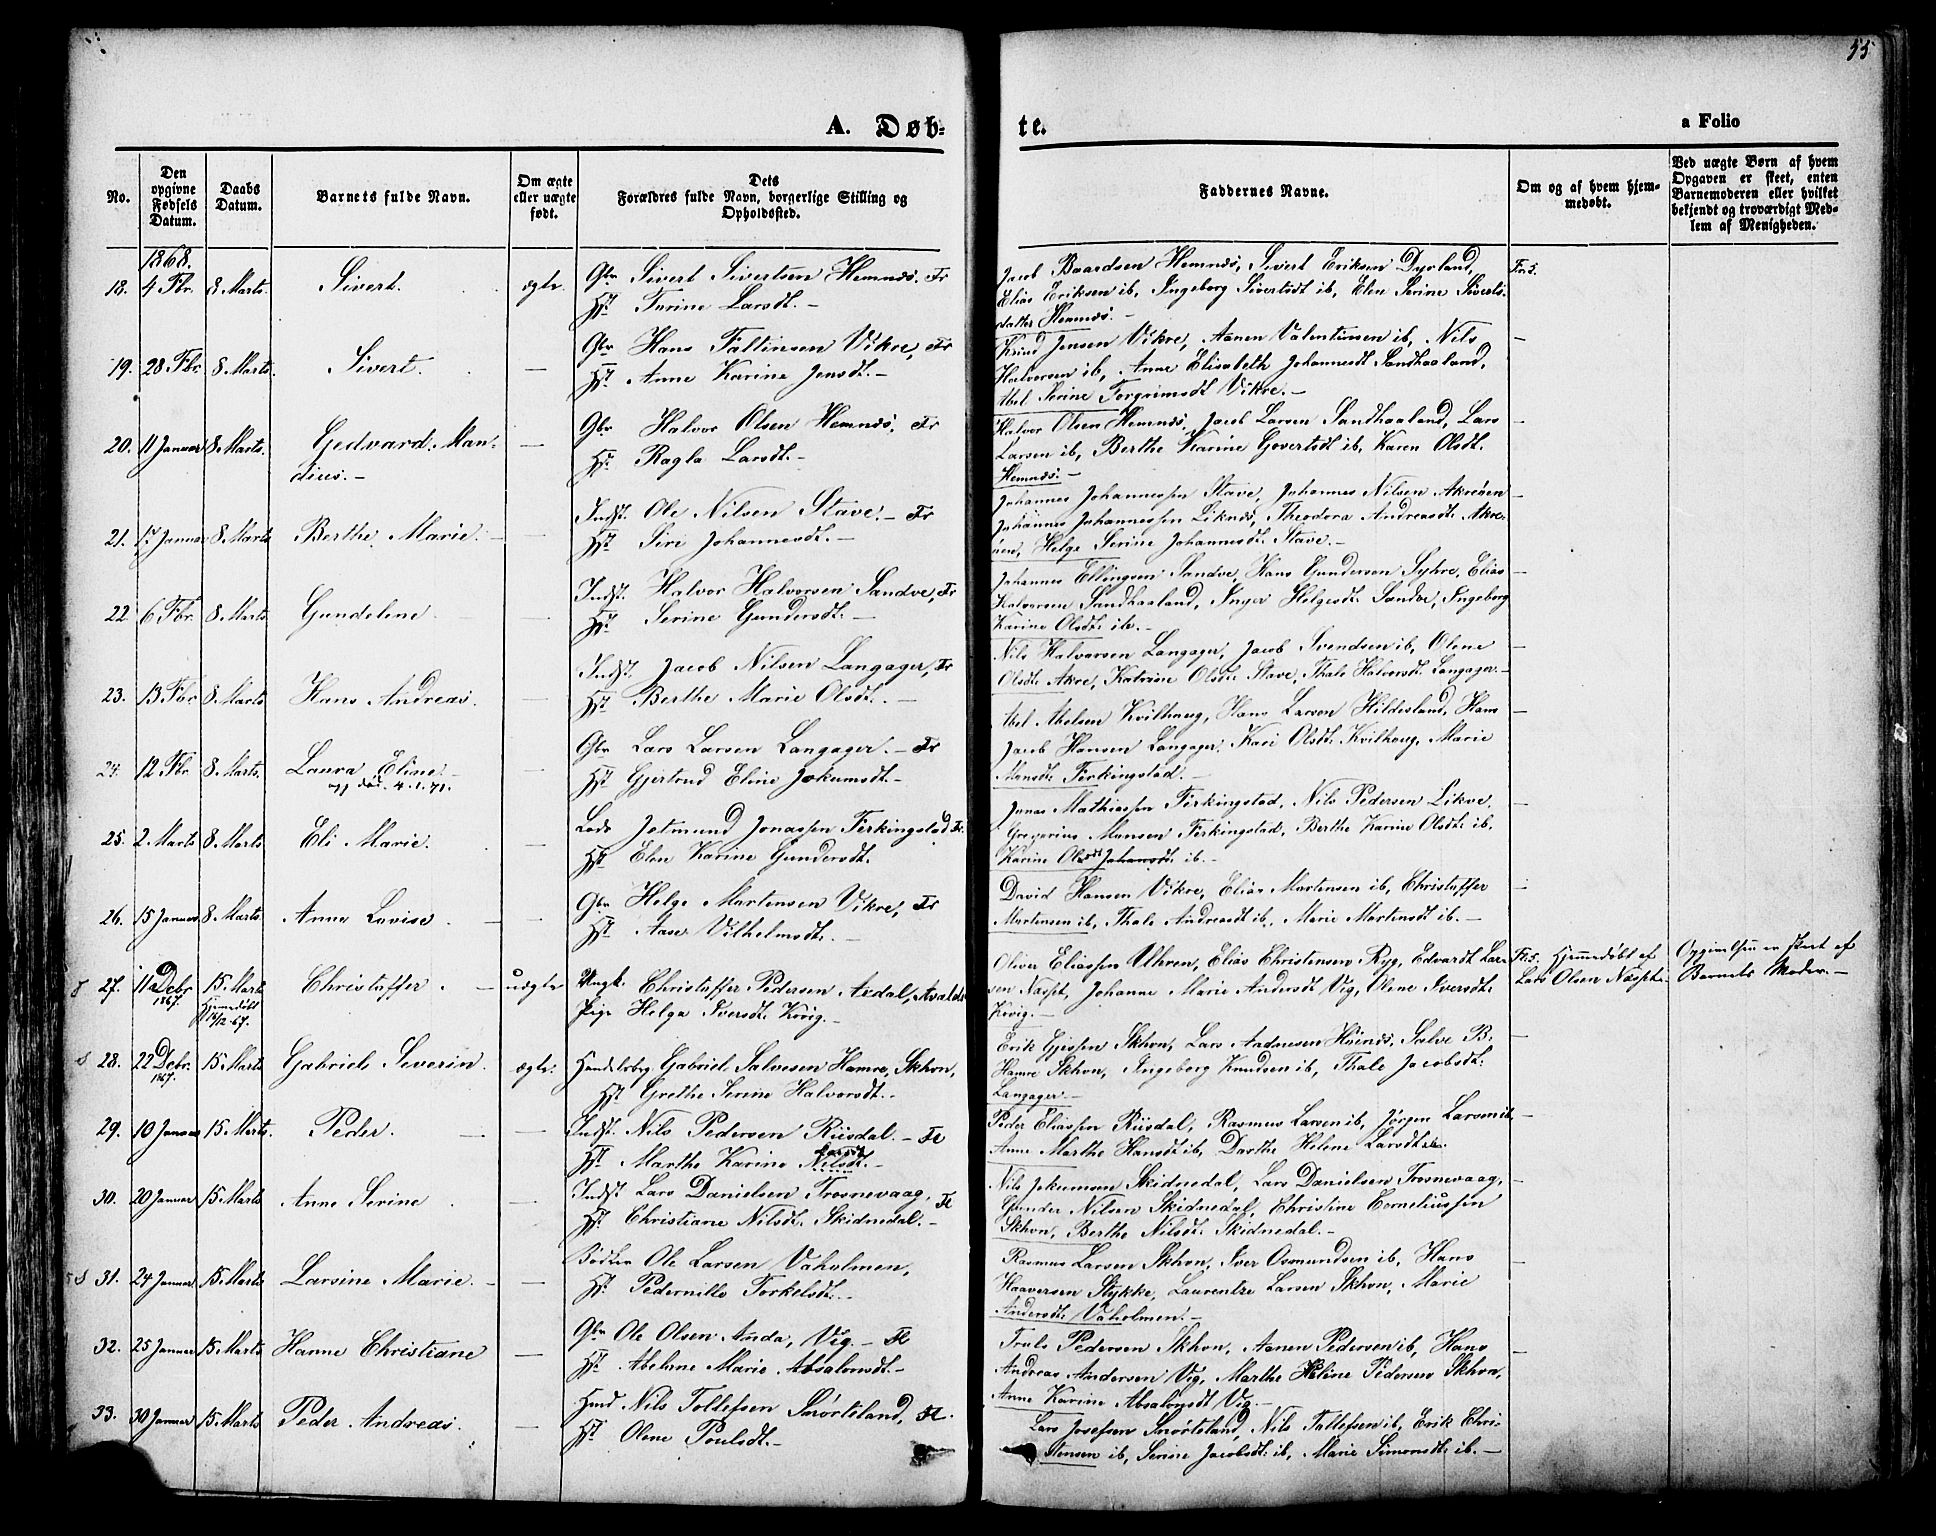 55
A. Døb-
te.
a Folio
No.
Den opgivne Fødsels Datum.
Daabs Datum.
Barnets fulde Navn.
Om ægte eller uægte født.
Dets Forældres fulde Navn, borgerlige Stilling og Opholdssted.
Faddernes Navne.
Om og af hvem hjemmedøbt.
Ved uægte Børn af hvem Opgaven er skeet, enten Barnemoderen eller hvilket bekjendt og troværdigt Medlem af Menigheden.
1868.
18. 4 Fbr. 8 Marts. Sivert. ægte Gbr Sivert Sivertsen Hemnæs. Fr
Hst. Turine Larsdt. –
Jacob Baardsen Hemnæs, Sivert Eriksen Dyrland,
Elias Eriksen ib, Ingeborg Sivertsdt ib, Elen Serine Siverts-
datter Hemnæs. –
Fr. 5.
19. 28 Fbr. 8 Marts. Sivert. — Gbr Hans Faltinsen Vikre, Fr
Hst. Anne Karine Jensdt. –
Knud Jensen Vikre, Aanen Valentinsen ib, Nils
Halvorsen ib, Anne Elisabeth Johannesdt Sandhaaland,
Abel Serine Torgrimsdt Vikre. –
20. 11 Januar 8 Marts. Gedvard Man-
dius. –
— Gbr Halvor Olsen Hemnæs, Fr
Hst. Ragla Larsdt. –
Halvor Olsen Hemnæs, Jacob Larsen Sandhaaland, Lars
Larsen ib, Berthe Karine Govertsdt ib, Karen Olsdt.
Hemnæs. –
21. 17 Januar 8 Marts Berthe Marie. — Indst. Ole Nilsen Stave. – Fr
Hst Siri Johannesdt. –
Johannes Johannessen Stave, Johannes Nilsen Akreøen
Johannes Johannessen Liknæs, Theodora Andreasdt. Akre-
øen, Helge Serine Johannesdt. Stave. –
22 6 Fbr. 8 Marts. Gundelene. — Indst. Halvor Halvorsen Sandve, Fr
Hst. Serine Gundersdt. –
Johannes Ellingsen Sandve, Hans Gundersen Syhre, Elias
Halvorsen Sandhaaland, Inger Helgesdt. Sandve, Ingeborg
Karine Olsdt. ib. –
23. 13 Fbr 8 Marts Hans Andreas. — Indst. Jacob Nilsen Langager, Fr
Hst. Berthe Marie Olsdt. –
Nils Halvorsen Langager, Jacob Svendsen ib, Olene
Olsdt. Akre, Katrine Olsdt. Stave, Thale Halvorsdt. Langager. –
24. 12 Fbr 8 Marts. Laura Eline. – — Gbr Lars Larsen Langager. – Fr
død 4.1.71.
Hst Gjertrud Eline Jokumsdt. –
Abel Abelsen Kvilhaug, Hans Larsen Hildesland, Hans
Jacob Hansen Langager, Kari Olsdt. Kvilhaug, Marie
Monsdt. Ferkingstad. –
25. 2 Marts 8 Marts. Eli Marie. — Lods Jetmund Jonassen Ferkingstad Fr.
Hst Elen Karine Gundersdt.
Jonas Mathiassen Ferkingstad, Nils Pedersen Likve,
Gregorius Monsen Ferkingstad, Berthe Karine Olsdt. ib,
Karine Olsdt Johansdt. ib. –
26. 15 Januar 8 Marts. Anne Lovise. — Gbr Helge Martensen Vikre, Fr
Hst. Aase Vilhelmsdt. –
David Hansen Vikre, Elias Martensen ib, Christoffer
Martensen ib, Thale Andreasdt ib, Marie Martensdt ib. –
27. 11 Debr 1867. 15 Marts Hjemmedøbt 16/12 67. Christoffer. – uægte Ungk. Christoffer Pedersen Aadal, Avalds
Pige Helga Iversdt. Kvig. –
Oliver Eliassen Uthren, Elias Christensen Ryg, Edvardt Lar-
sen Næsset, Johanne Marie Andersdt Vig, Olene Iversdt.
Kvig. –
Fr. 5. Hjemmedøbt af
Lars Olsen Næsset.
Opgivelsen er skeet af
Barnets Moder. –
28. 22 Debr. 1867. 15 Marts Gabriel Severin. ægte. Handelsborg. Gabriel Salvesen Hamre, Skhvn,
Hst Grethe Serine Halvorsdt. –
Erik Gjessen Skhvn, Lars Aadnesen Høines, Salve B.
Hamre Skhvn, Ingeborg Knudsen ib, Thale Jacobsdt.
Langager. –
29. 10 Januar 15 Marts. Peder. — Indst. Nils Pedersen Riisdal. – Fl
Hst Marthe Karine Nilsdt. –
Peder Eliassen Riisdal, Rasmus Larsen ib, Jørgen Larsen ib
Anne Marthe Hansdt ib, Dorthe Helene Larsdt ib.
30. 20 Januar 15 Marts Anne Serine — Indst Lars Danielsen Trosnevaag, Fl
Hst. Christiane Nilsdt. Skidnedal. –
Nils Jokumsen Skidnedal, Lars Danielsen Trosnevaag,
Gunder Nilsen Skidnedal, Christine Corneliussen
Skhvn, Berthe Nilsdt. Skidnedal. –
31. 24 Januar 15 Marts Larsine Marie. – — Bødker Ole Larsen Vaholmen,
Hst. Pedernille Torkelsdt. –
Rasmus Larsen Skhvn, Iver Osmundsen ib, Hans
Haaversen Stykke, Laurentze Larsen Skhvn, Marie
Andersdt. Vaholmen. –
32. 25 Januar 15 Marts Hanne Christiane — Gbr Ole Olsen Anda, Vig – Fl
Hst. Abelene Marie Absalonsdt. –
Truls Pedersen Skhvn, Aanen Pedersen ib, Hans
Andreas Andersen Vig, Marthe Heline Pedersen Skhvn,
Anne Karine Absalonsdt Vig. –
33. 30 Januar 15 Marts Peder Andreas. — Hmd Nils Tollefsen Snørteland, Fl.
Hst. Olene Poulsdt. –
Lars Josefsen Snørteland, Nils Tollefsen ib, Erik Chri-
stensen ib, Serine Jacobsdt. ib, Marie Simonsdt. ib. –